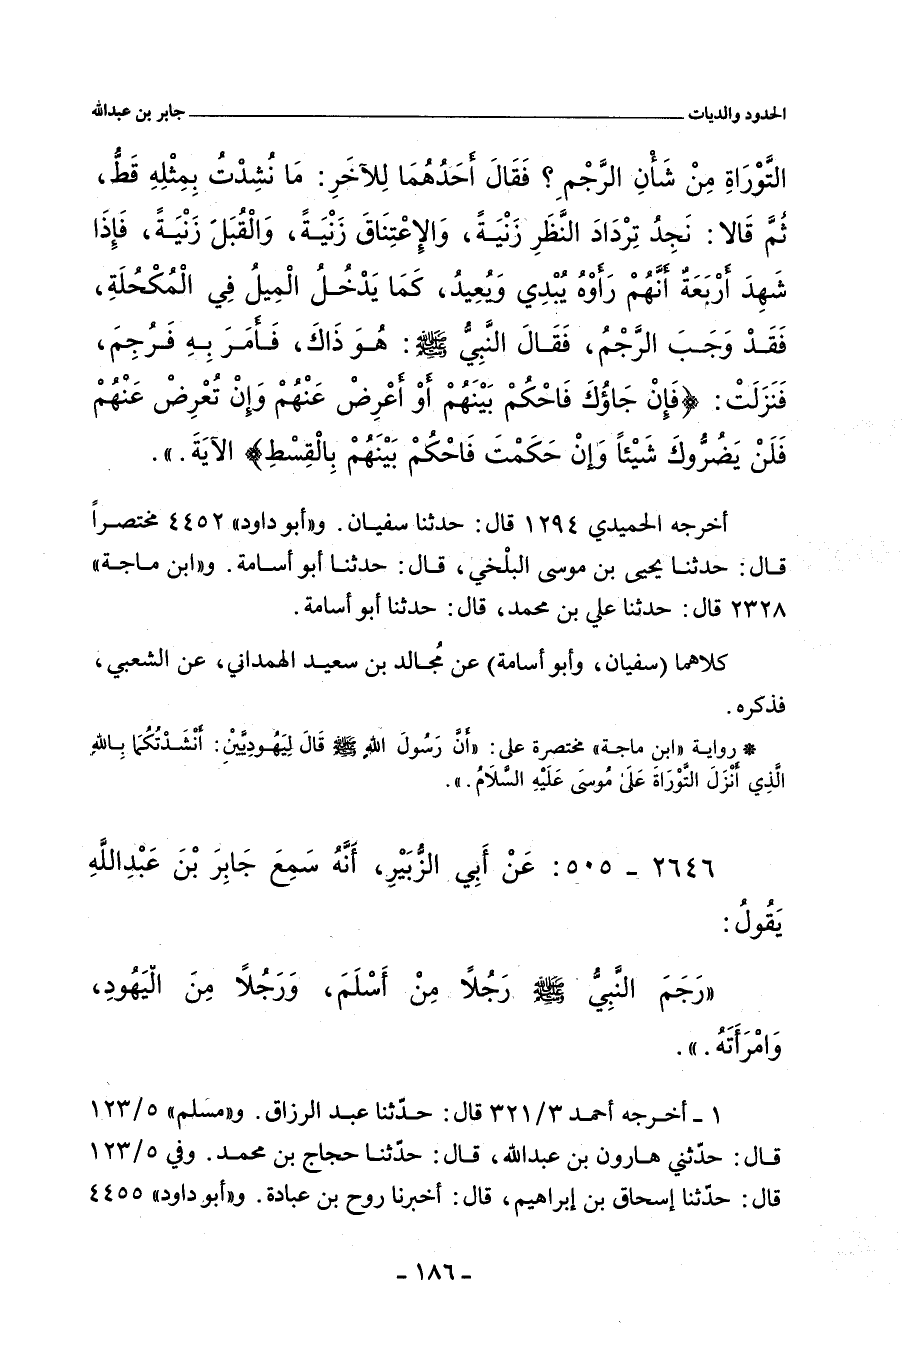 الحدود والديات ــــــــــــــــــــــــــــــــــــــــ جابر بن عبدالله
التَّوْرَاةِ مِنْ شَأْنِ الرَّجْمِ ؟ فَقَالَ أَحَدُهُمَا لِلآخَرِ : مَا نُشِدْتُ بِمِثْلِهِ قَطُّ ،
ثُمَّ قَالا : نَجِدُ تِرْدَادَ النَّظَرِ زَنْيَةً ، وَالإِعْتِنَاقَ زَنْيَةً ، وَالْقُبَلَ زَنْيَةً ، فَإِذَا
شَهِدَ أَرْبَعَةٌ أَنَّهُمْ رَأَوْهُ يُبْدِي وَيُعِيدُ ، كَمَا يَدْخُلُ الْمِيلُ فِي الْمُكْحُلَةِ ،
فَقَدْ وَجَبَ الرَّجْمُ ، فَقَالَ النَّبِيُّ ﷺ : هُوَ ذَاكَ ، فَأَمَرَ بِهِ فَرُجِمَ ،
فَنَزَلَتْ : ﴿فَإِنْ جَاؤُكَ فَاحْكُمْ بَيْنَهُمْ أَوْ أَعْرِضْ عَنْهُمْ وَإِنْ تُعْرِضْ عَنْهُمْ
فَلَنْ يَضُرُّوكَ شَيْئاً وَإِنْ حَكَمْتَ فَاحْكُمْ بَيْنَهُمْ بِالْقِسْطِ﴾ الآيَةَ . » .
أخرجه الحميدي ١٢٩٤ قال : حدثنا سفيان . و«أبو داود» ٤٤٥٢ مختصراً
قال : حدثنا يحيى بن موسى البلْخي ، قال : حدثنا أبو أسامة . و«ابن ماجة»
٢٣٢٨ قال : حدثنا علي بن محمد ، قال : حدثنا أبو أسامة .
كلاهما (سفيان ، وأبو أسامة) عن مُجالد بن سعيد الهمداني ، عن الشعبي ،
فذكره .
* رواية «ابن ماجة» مختصرة على : «أَنَّ رَسُولَ اللهِ ﷺ قَالَ لِيَهُودِيَّيْنِ : أَنْشَدْتُكُمَا بِاللهِ
الَّذِي أَنْزَلَ التَّوْرَاةَ عَلَىٰ مُوسَى عَلَيْهِ السَّلَامُ . » .
٢٦٤٦ - ٥٠٥ : عَنْ أَبِي الزُّبَيْرِ ، أَنَّهُ سَمِعَ جَابِرَ بْنَ عَبْدِاللَّهِ
يَقُولُ :
«رَجَمَ النَّبِيُّ ﷺ رَجُلًا مِنْ أَسْلَمَ ، وَرَجُلًا مِنَ الْيَهُودِ ،
وَامْرَأَتَهُ . » .
١ - أخرجه أحمد ٣٢١/٣ قال : حدّثنا عبد الرزاق . و«مسلم» ١٢٣/٥
قال : حدّثني هارون بن عبدالله ، قال : حدّثنا حجاج بن محمد . وفي ١٢٣/٥
قال : حدّثنا إسحاق بن إبراهيم ، قال : أخبرنا روح بن عبادة . و«أبو داود» ٤٤٥٥
- ١٨٦ -